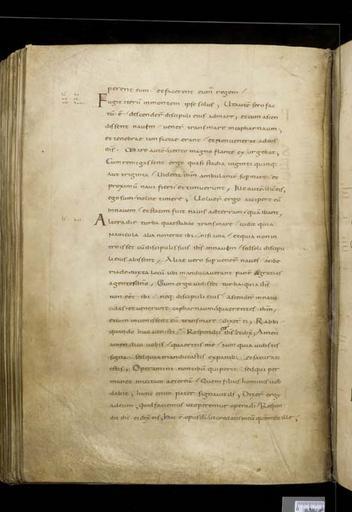 perent eum et facerent eum regem
Fugit iterum in montem ipse solus; Ut autem sero fac
tum e descenderunt discipuli eius ad mare, et cum ascen
dissent navem venerunt trans mare in capharnaum,
et tenebrae iam factae erant et non venerat ad eos
ihs Mare autem vento magno flante exsurgebat;
Cum remigassent ergo quasi stadia viginti quinq;
aut triginta vident ihm ambulantem sup mare et
proximum navi fieri et timuerunt; Ille autem dicit eis,
ego sum nolite timere; Voluerunt ergo accipere eum
in navem et statim fuit navis ad terram quam ibant;
Altera die turba quae stabat trans mare vidit quia
navicula alia non erat ibi nisi una et quia non in
troisset cum discipulis suis ihs in navem sed soli discipu
li eius abissent; Aliae vero supvenerunt naves
locum ubi manducaverant panem gratias
agente dno; Cum ergo vidisset turba quia ihs
non e&t ibi neq; discipuli eius ascenderunt navi
culas et venerunt capharnaum quaerentes ihm;
et cum invenissent eum trans mare dixerunt ei; Rabbi
quando huc venisti; Respondit eis ihs et dixit; Amen
amen dico vobis quaeritis me non quia vidistis
signa sed quia manducastis ex panib; et saturati
estis; Operamini non cibum qui perit sed qui per
manet in vitam aeternam Quem filius hominis vob
dabit; hunc enim pater signavit ds; Dixerunt ergo
ad eum; Quid faciemus ut operemur opera di; Respon
dit ihs et dixit eis; hoc e opus di ut credatis in eum quem misit ille;